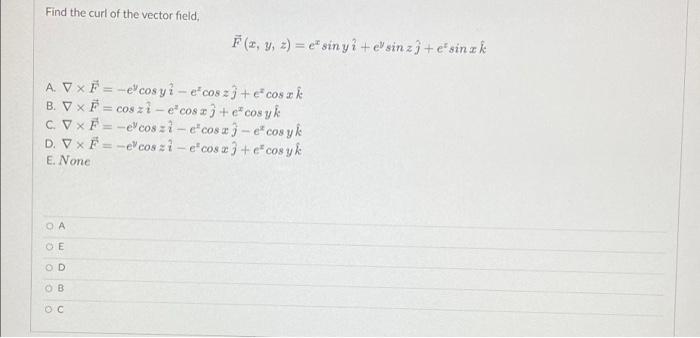 Find the curl of the vector field,
F⃗ (x, y, z) = eˣ sin y î + eʸ sin z ĵ + eᶻ sin x k̂
A. ∇ × F⃗ = −eʸ cos y î − eᶻ cos z ĵ + eˣ cos x k̂
B. ∇ × F⃗ = cos z î − eᶻ cos x ĵ + eˣ cos y k̂
C. ∇ × F⃗ = −eʸ cos z î − eᶻ cos x ĵ − eˣ cos y k̂
D. ∇ × F⃗ = −eʸ cos z î − eᶻ cos x ĵ + eˣ cos y k̂
E. None
A
E
D
B
C